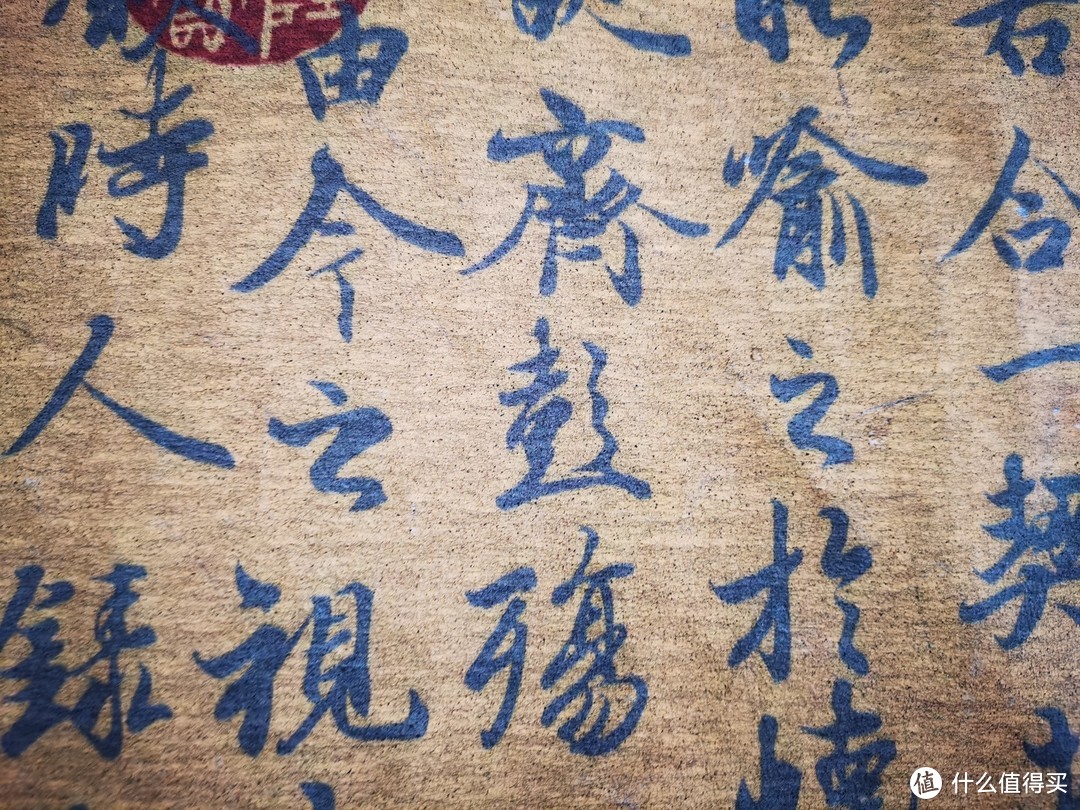 若合一契
能喻之於懷
齊彭殤
由今之視
時人錄
值 什么值得买